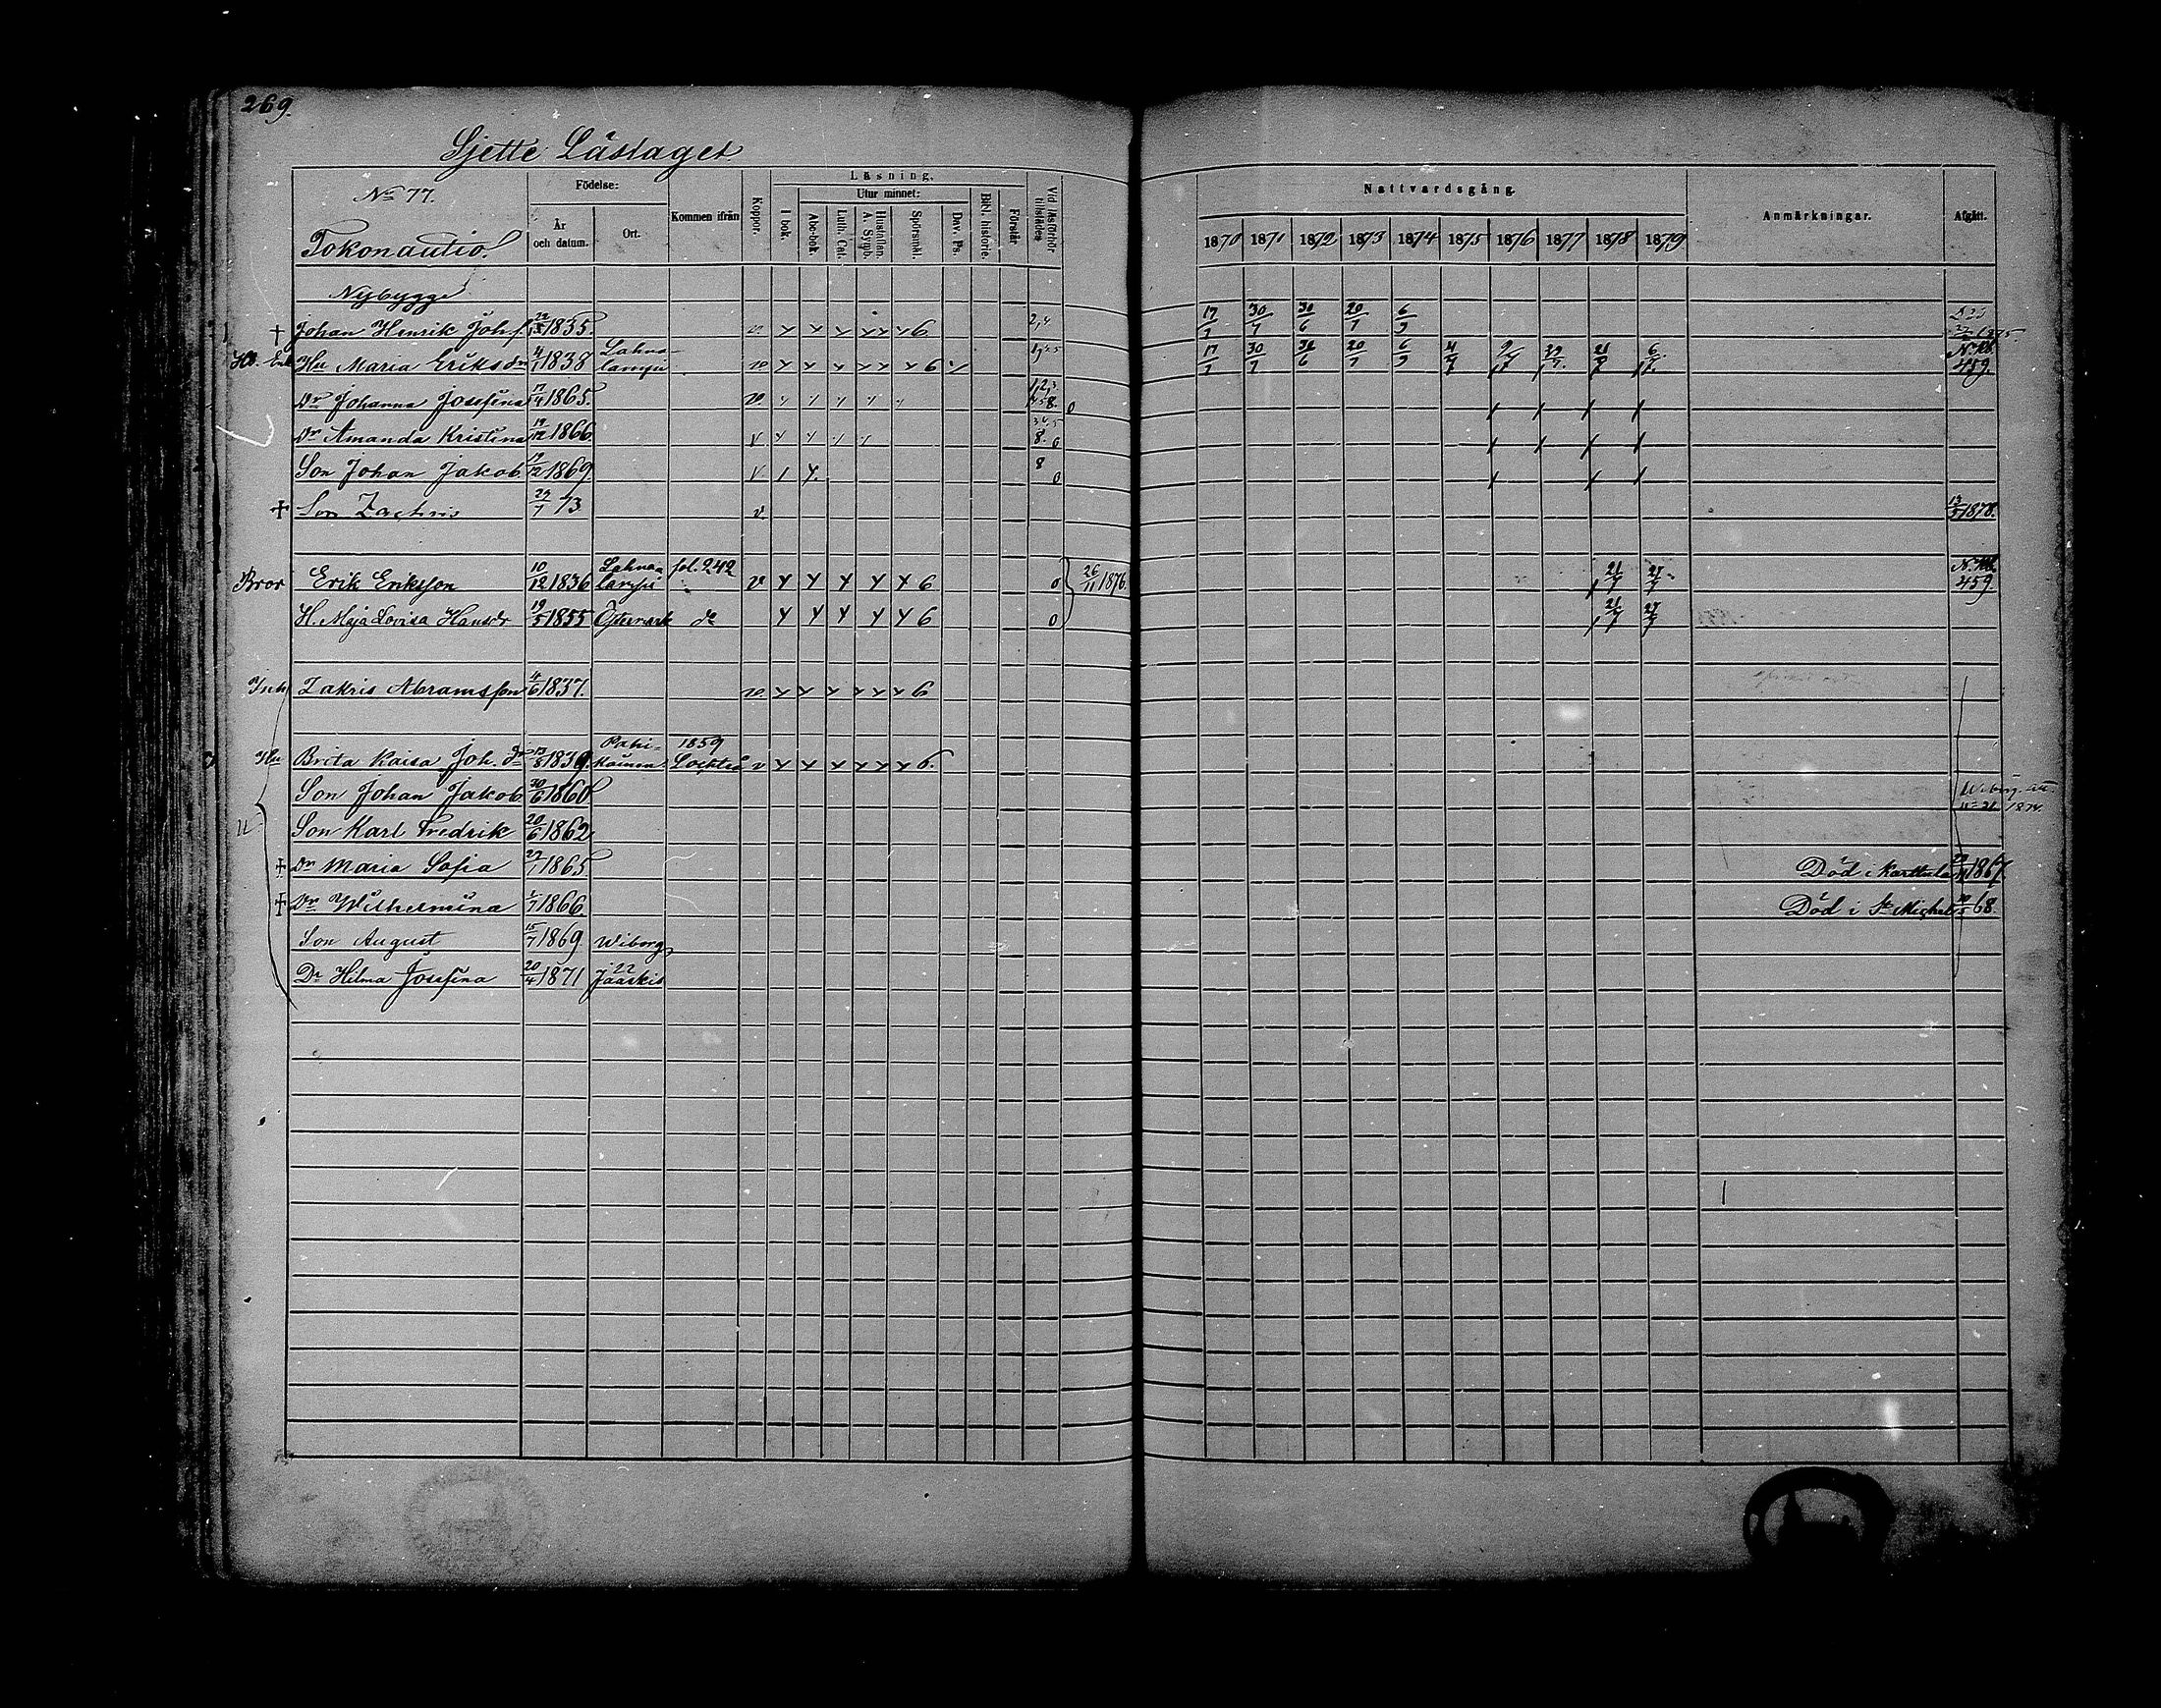 269.
Sjette Låslaget
No 77.
Tokonautio.
Födelse: År och datum. Ort. Kommen ifrån Koppor. Läsning. I bok. Utur minnet: Abc-bok. Luth. Cat. Hustaflan. A. Symb. Spörsmål. Dav. Ps. Bibl. historie. Förstår Vid läsförhör tillstädes
Nattvardsgång. 1870 1871 1872 1873 1874 1875 1876 1877 1878 1879 Anmärkningar. Afgått.
Nybygge
† Johan Henrik Johs. 1835. v. 6 2,4 17/7 30/7 30/6 20/7 6/9 1875.
Hu Maria Eriksdr 4/1 1838 Lahna-lampi v 6 17/7 30/7 30/6 20/7 6/9 459.
Dr Johanna Josefina 17/4 1865. v 0
Dr Amanda Kristina 19/12 1866. v 8. 0
Son Johan Jakob 19/12 1869. v 8 0
† Son Zachris 29/7 73 v. 13/3 1878.
Bror Erik Eriksson 10/12 1836 Lahna-lampi fol. 242 v 6 0 26/11 1876. 21/7 27/7 459.
H. Maja Lovisa Hansdr 19/5 1855 Östermark do 6 0 21/7 27/7
Inh Zakris Abramsson 4/6 1837. v. 6
Hu Brita Kaisa Joh. dr 13/8 1839. 1859 Lochteå v 6.
Son Johan Jakob 30/6 1860 1874.
Son Karl Fredrik 20/6 1862
† Dr Maria Sofia 22/1 1865 Död i Karttula 1867
† Dr Wilhelmina 1/7 1866. Död i St Michel 68.
Son August 15/7 1869 Wiborg
Dr Hilma Josefina 20/4 1871 Jääskis